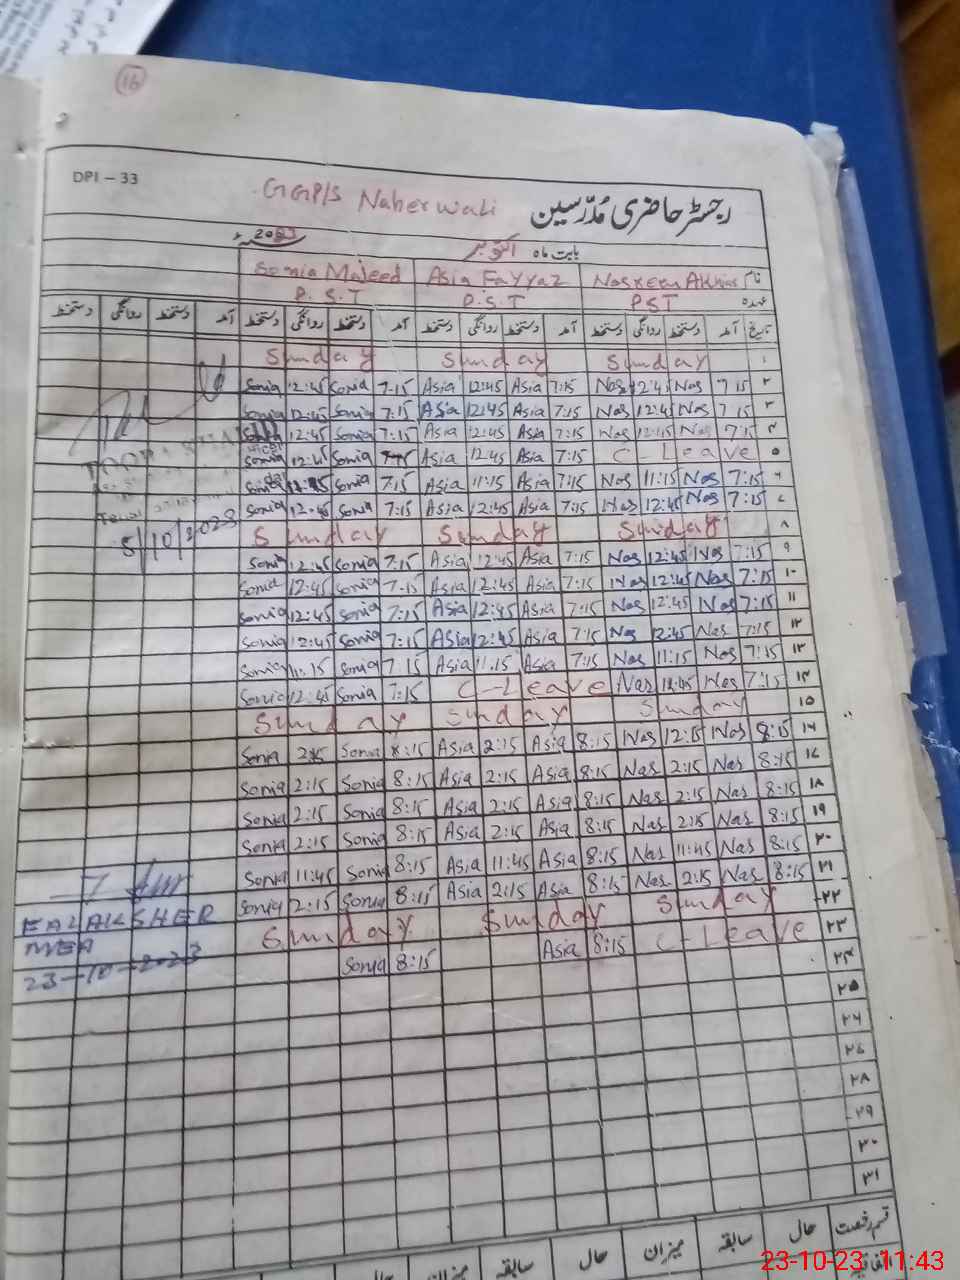 16
DPI - 33
GGP/S Naherwali رجسٹر حاضری مُدرّسین
بابت ماہ اکتوبر 2023ء
نام Nasreen Akhtar Asia Fayyaz Sonia Majeed
عہدہ PST P.S.T P.S.T
تاریخ آمد دستخط روانگی دستخط آمد دستخط روانگی دستخط آمد دستخط روانگی دستخط آمد دستخط روانگی دستخط
Sunday Sunday Sunday ۱
Sonia 12:45 Sonia 7:15 Asia 12:45 Asia 7:15 Nas 12:45 Nas 7:15 ۲
Sonia 12:45 Sonia 7:15 Asia 12:45 Asia 7:15 Nas 12:45 Nas 7:15 ۳
12:45 Sonia 7:15 Asia 12:45 Asia 7:15 Nas 12:45 Nas 7:15 ۴
Sonia 12:45 Sonia 7:15 Asia 12:45 Asia 7:15 C-Leave ۵
Sonia Sonia 7:15 Asia 11:15 Asia 7:15 Nas 11:15 Nas 7:15 ۶
Sonia 12:45 Sonia 7:15 Asia 12:45 Asia 7:15 Nas 12:45 Nas 7:15 ۷
5/10/2023 Sunday Sunday Sunday ۸
Sonia 12:45 Sonia 7:15 Asia 12:45 Asia 7:15 Nas 12:45 Nas 7:15 ۹
Sonia 12:45 Sonia 7:15 Asia 12:45 Asia 7:15 Nas 12:45 Nas 7:15 ۱۰
Sonia 12:45 Sonia 7:15 Asia 12:45 Asia 7:15 Nas 12:45 Nas 7:15 ۱۱
Sonia 12:45 Sonia 7:15 Asia 12:45 Asia 7:15 Nas 12:45 Nas 7:15 ۱۲
Sonia 11:15 Sonia 7:15 Asia 11:15 Asia 7:15 Nas 11:15 Nas 7:15 ۱۳
Sonia 12:45 Sonia 7:15 C-Leave Nas 12:45 Nas 7:15 ۱۴
Sunday Sunday Sunday ۱۵
Sonia 2:15 Sonia 8:15 Asia 2:15 Asia 8:15 Nas 12:15 Nas 8:15 ۱۶
Sonia 2:15 Sonia 8:15 Asia 2:15 Asia 8:15 Nas 2:15 Nas 8:15 ۱۷
Sonia 2:15 Sonia 8:15 Asia 2:15 Asia 8:15 Nas 2:15 Nas 8:15 ۱۸
Sonia 2:15 Sonia 8:15 Asia 2:15 Asia 8:15 Nas 2:15 Nas 8:15 ۱۹
Sonia 11:45 Sonia 8:15 Asia 11:45 Asia 8:15 Nas 11:45 Nas 8:15 ۲۰
Sonia 2:15 Sonia 8:15 Asia 2:15 Asia 8:15 Nas 2:15 Nas 8:15 ۲۱
Sunday Sunday Sunday ۲۲
Sonia 8:15 Asia 8:15 C-Leave ۲۳
FALAKSHER
MEA
23-10-2023
۲۴
۲۵
۲۶
۲۷
۲۸
۲۹
۳۰
۳۱
قسم رخصت حال سابقہ میزان حال سابقہ میزان حال
اتفاقیہ
23-10-23 11:43